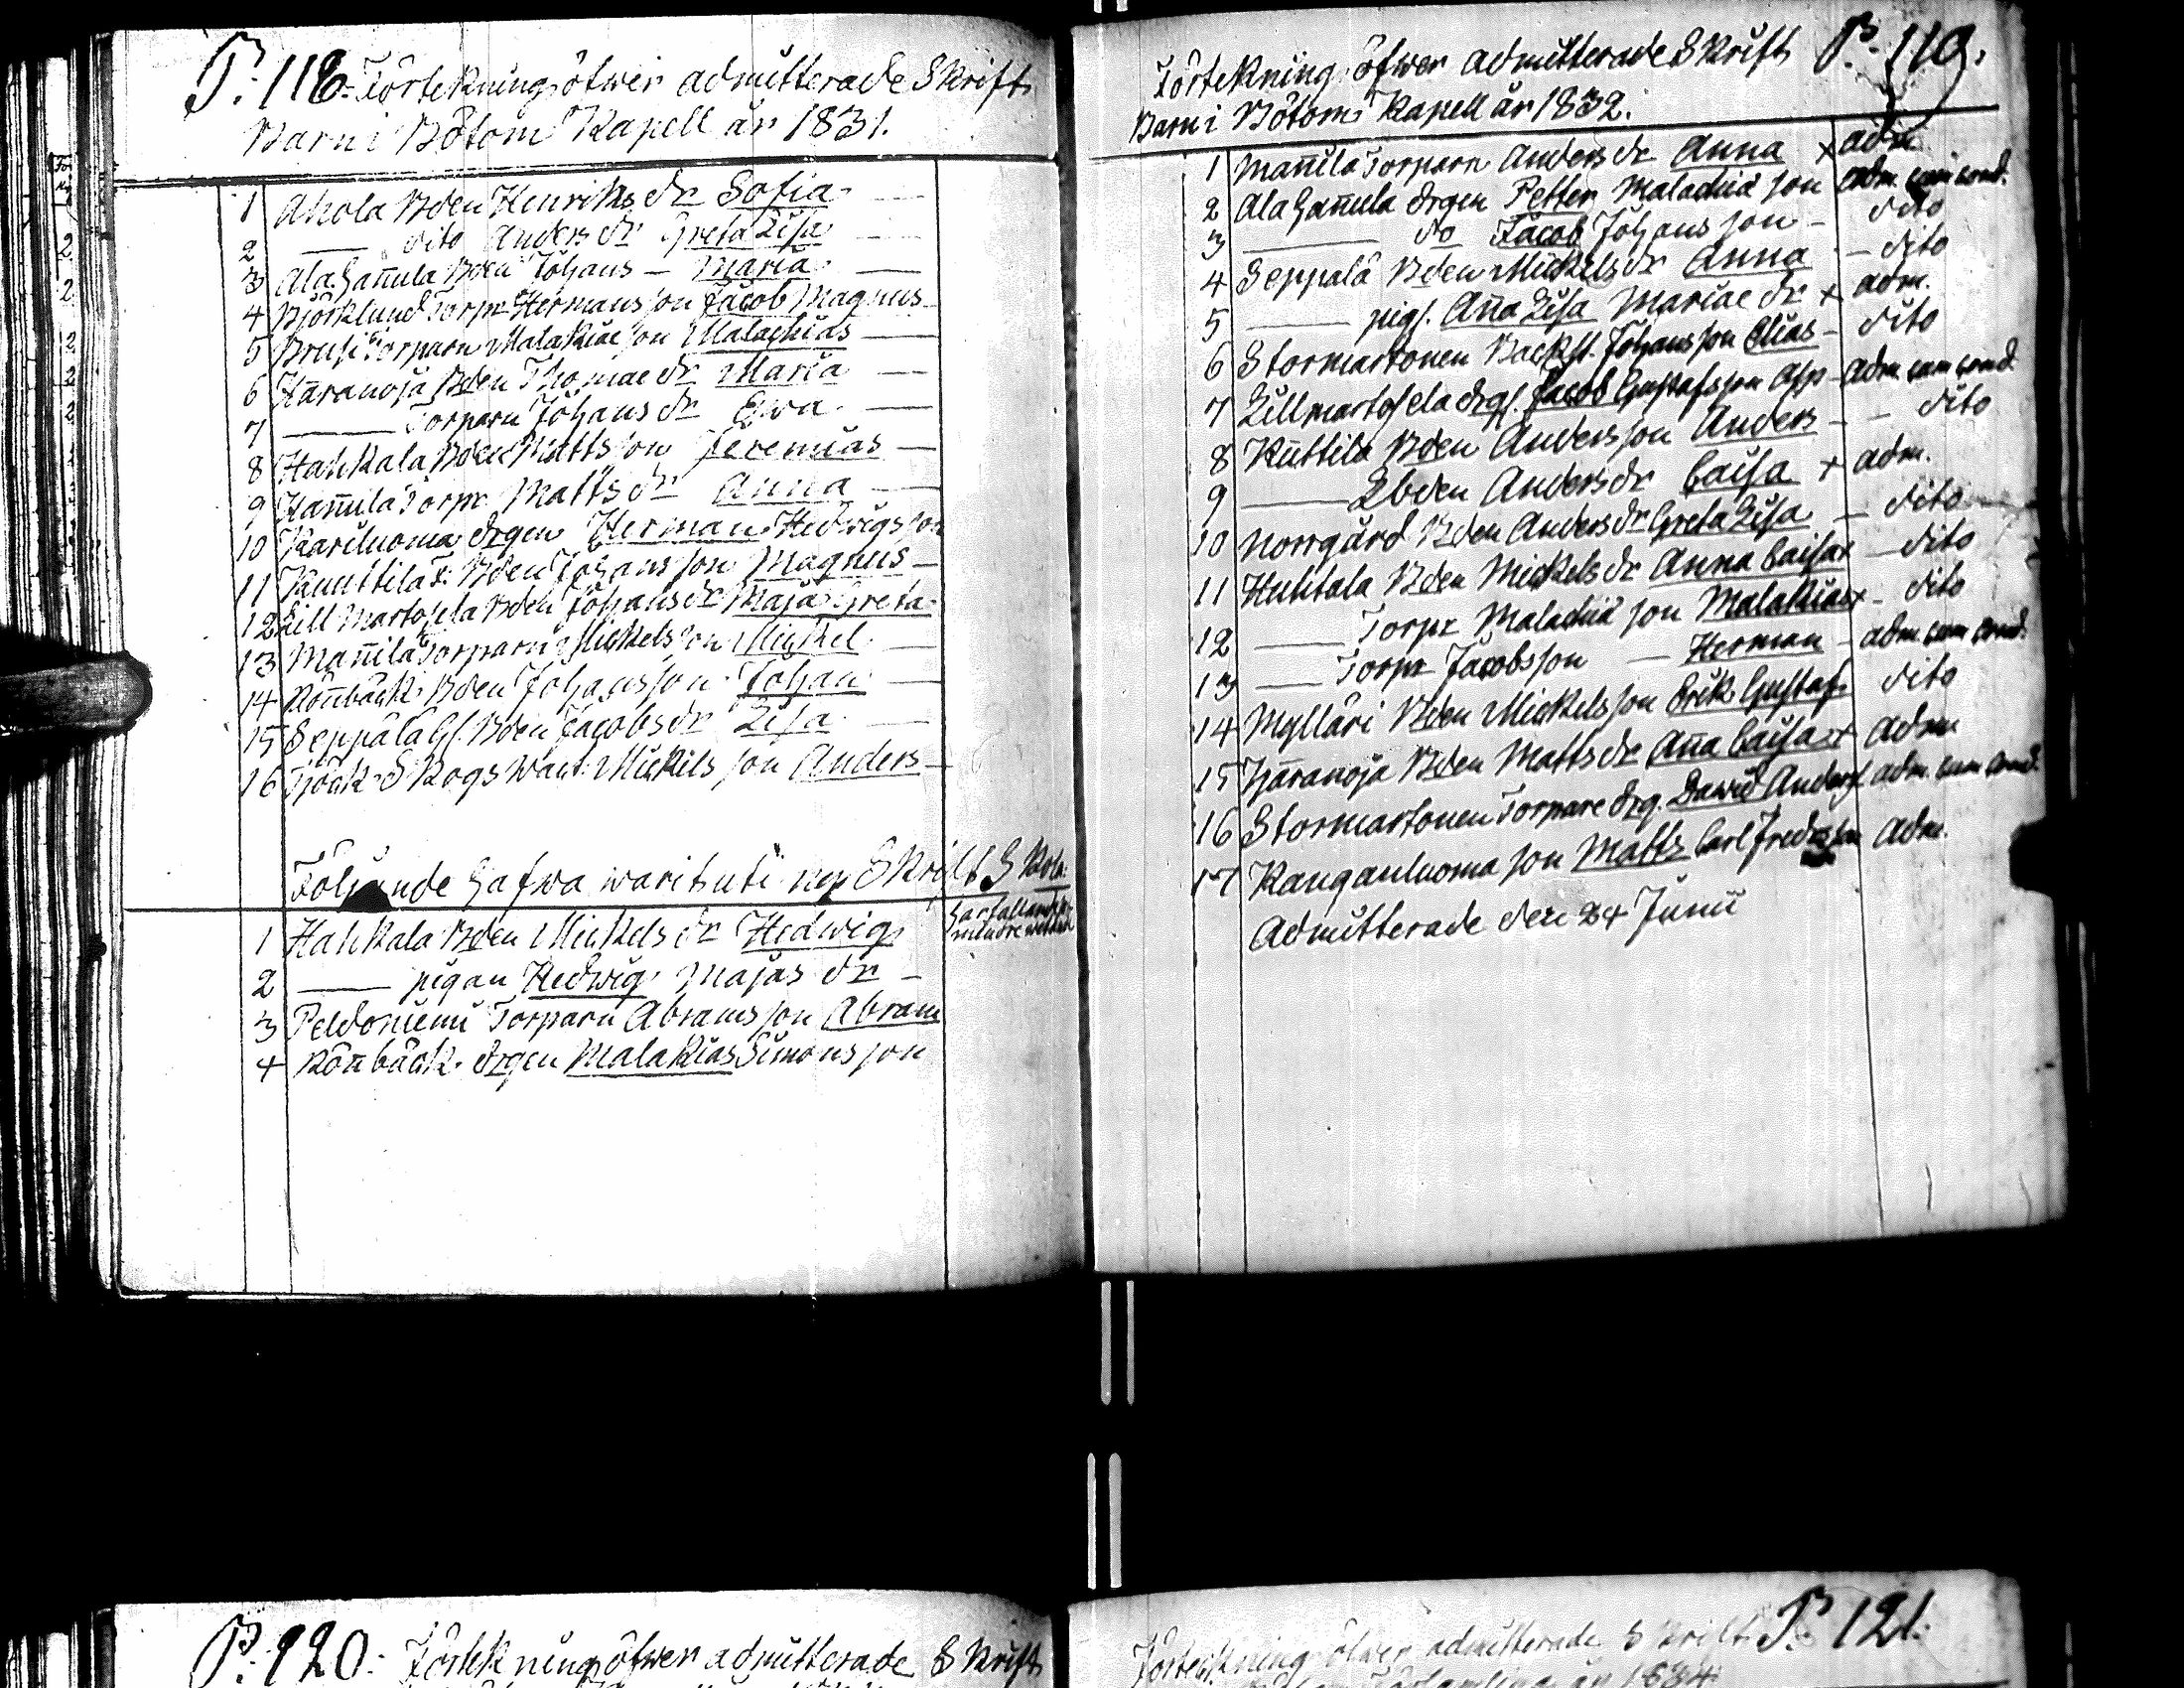 P. 118. Förtekning öfwer admitterade Skrift
Barn i Bötom Kapell år 1831.
1 Ahola Bden Henriks dr Sofia
2 — dito Anders dr Greta Lisa
3 Ala Gan̄ila Bden Johans — Maria
4 Björklund Torpr Hermans son Jacob Magnus
5 Brusi Torparn Malakiæ son Malachias
6 Haranoja Bden Thomae dr Maria
7 — Torparn Johans dr Ewa
8 Hahkala Bden Matts son Jeremias
9 Han̄ula Torpr Matts dr Anna
10 Kariluoma drgen Herman Hedwigs son
11 Knuttila Bden Johans son Magnus
12 Lill Martosela Bden Johans dr Maja Greta
13 Man̄ila Torparn Mickels son Mickel
14 Rön̄bäck Bden Johans son Johan
15 Seppälä Gl. Bden Jacobs dr Lisa
16 Tjöck Skogswakt Mickels son Anders
Följande hafwa warit uti ny Skrift Skola
1 Hahkala Bden Mickels dr Hedwig
2 — pigan Hedwig Majas dr
3 Peldoniemi Torparn Abrams son Abram
4 Rön̄bäck drgen Malakias Simons son
P. 119.
Förtekning öfwer admitterade Skrift
Barn i Bötoms Kapell år 1832.
1 Man̄ila Torparn Anders dr Anna x adm.
2 Ala Gan̄ula drgen Petter Malachiæ son adm. cum cond.
3 — do Jacob Johans son — dito
4 Seppälä Bden Mickels dr Anna — dito
5 — pig. An̄a Lisa Mariae dr x adm.
6 Stormartonen Backst. Johans son Elias — dito
7 Lillmartosela drg. Jacob Gustafsson Asp — adm. cum cond.
8 Knuttila Bden Anders son Anders — dito
9 — Lbden Anders dr Caisa x adm.
10 Norrgård Bden Anders dr Greta Lisa — dito
11 Huhtala Bden Mickels dr Anna Caisa x — dito
12 — Torpr Malachiæ son Malakias x — dito
13 — Torpr Jacobs son — Herman — adm. cum cond.
14 Mylläri Bden Mickels son Erik Gustaf dito
15 Haranoja Bden Matts dr An̄a Caisa x adm
16 Stormartonen Torpare drg. David Anders adm. cum cond.
17 Kanganluoma son Matts Carl Fredrsson adm.
Admitterade den 24 Junii
P. 120. Förtekning öfwer admitterade Skrift
P. 121.
Förtekning öfwer admitterade Skrift